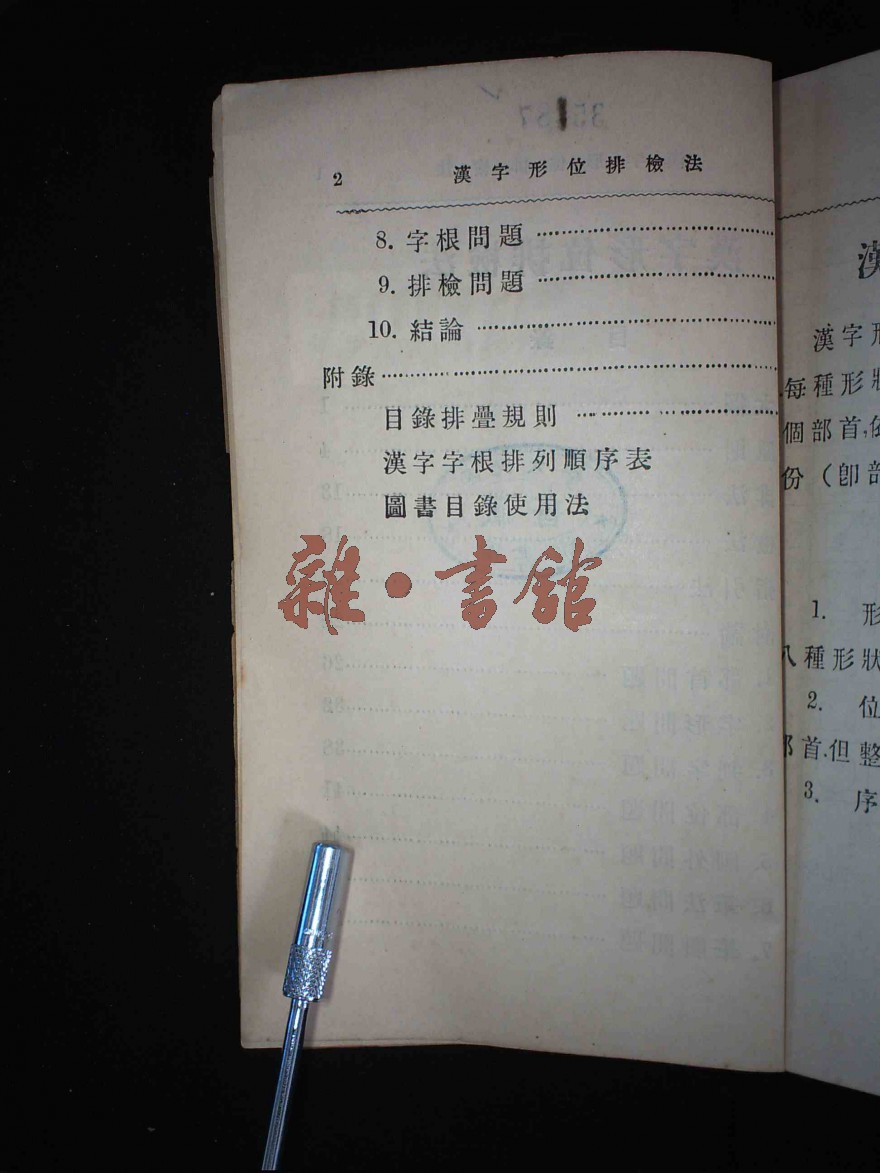 2 漢字形位排檢法
8. 字根問題
9. 排檢問題
10. 結論
附錄
目錄排疊規則
漢字字根排列順序表
圖書目錄使用法
雜·書館
漢
漢字形
每種形狀
個部首,依
份（卽部
1. 形
八種形狀
2. 位
部首.但整
3. 序